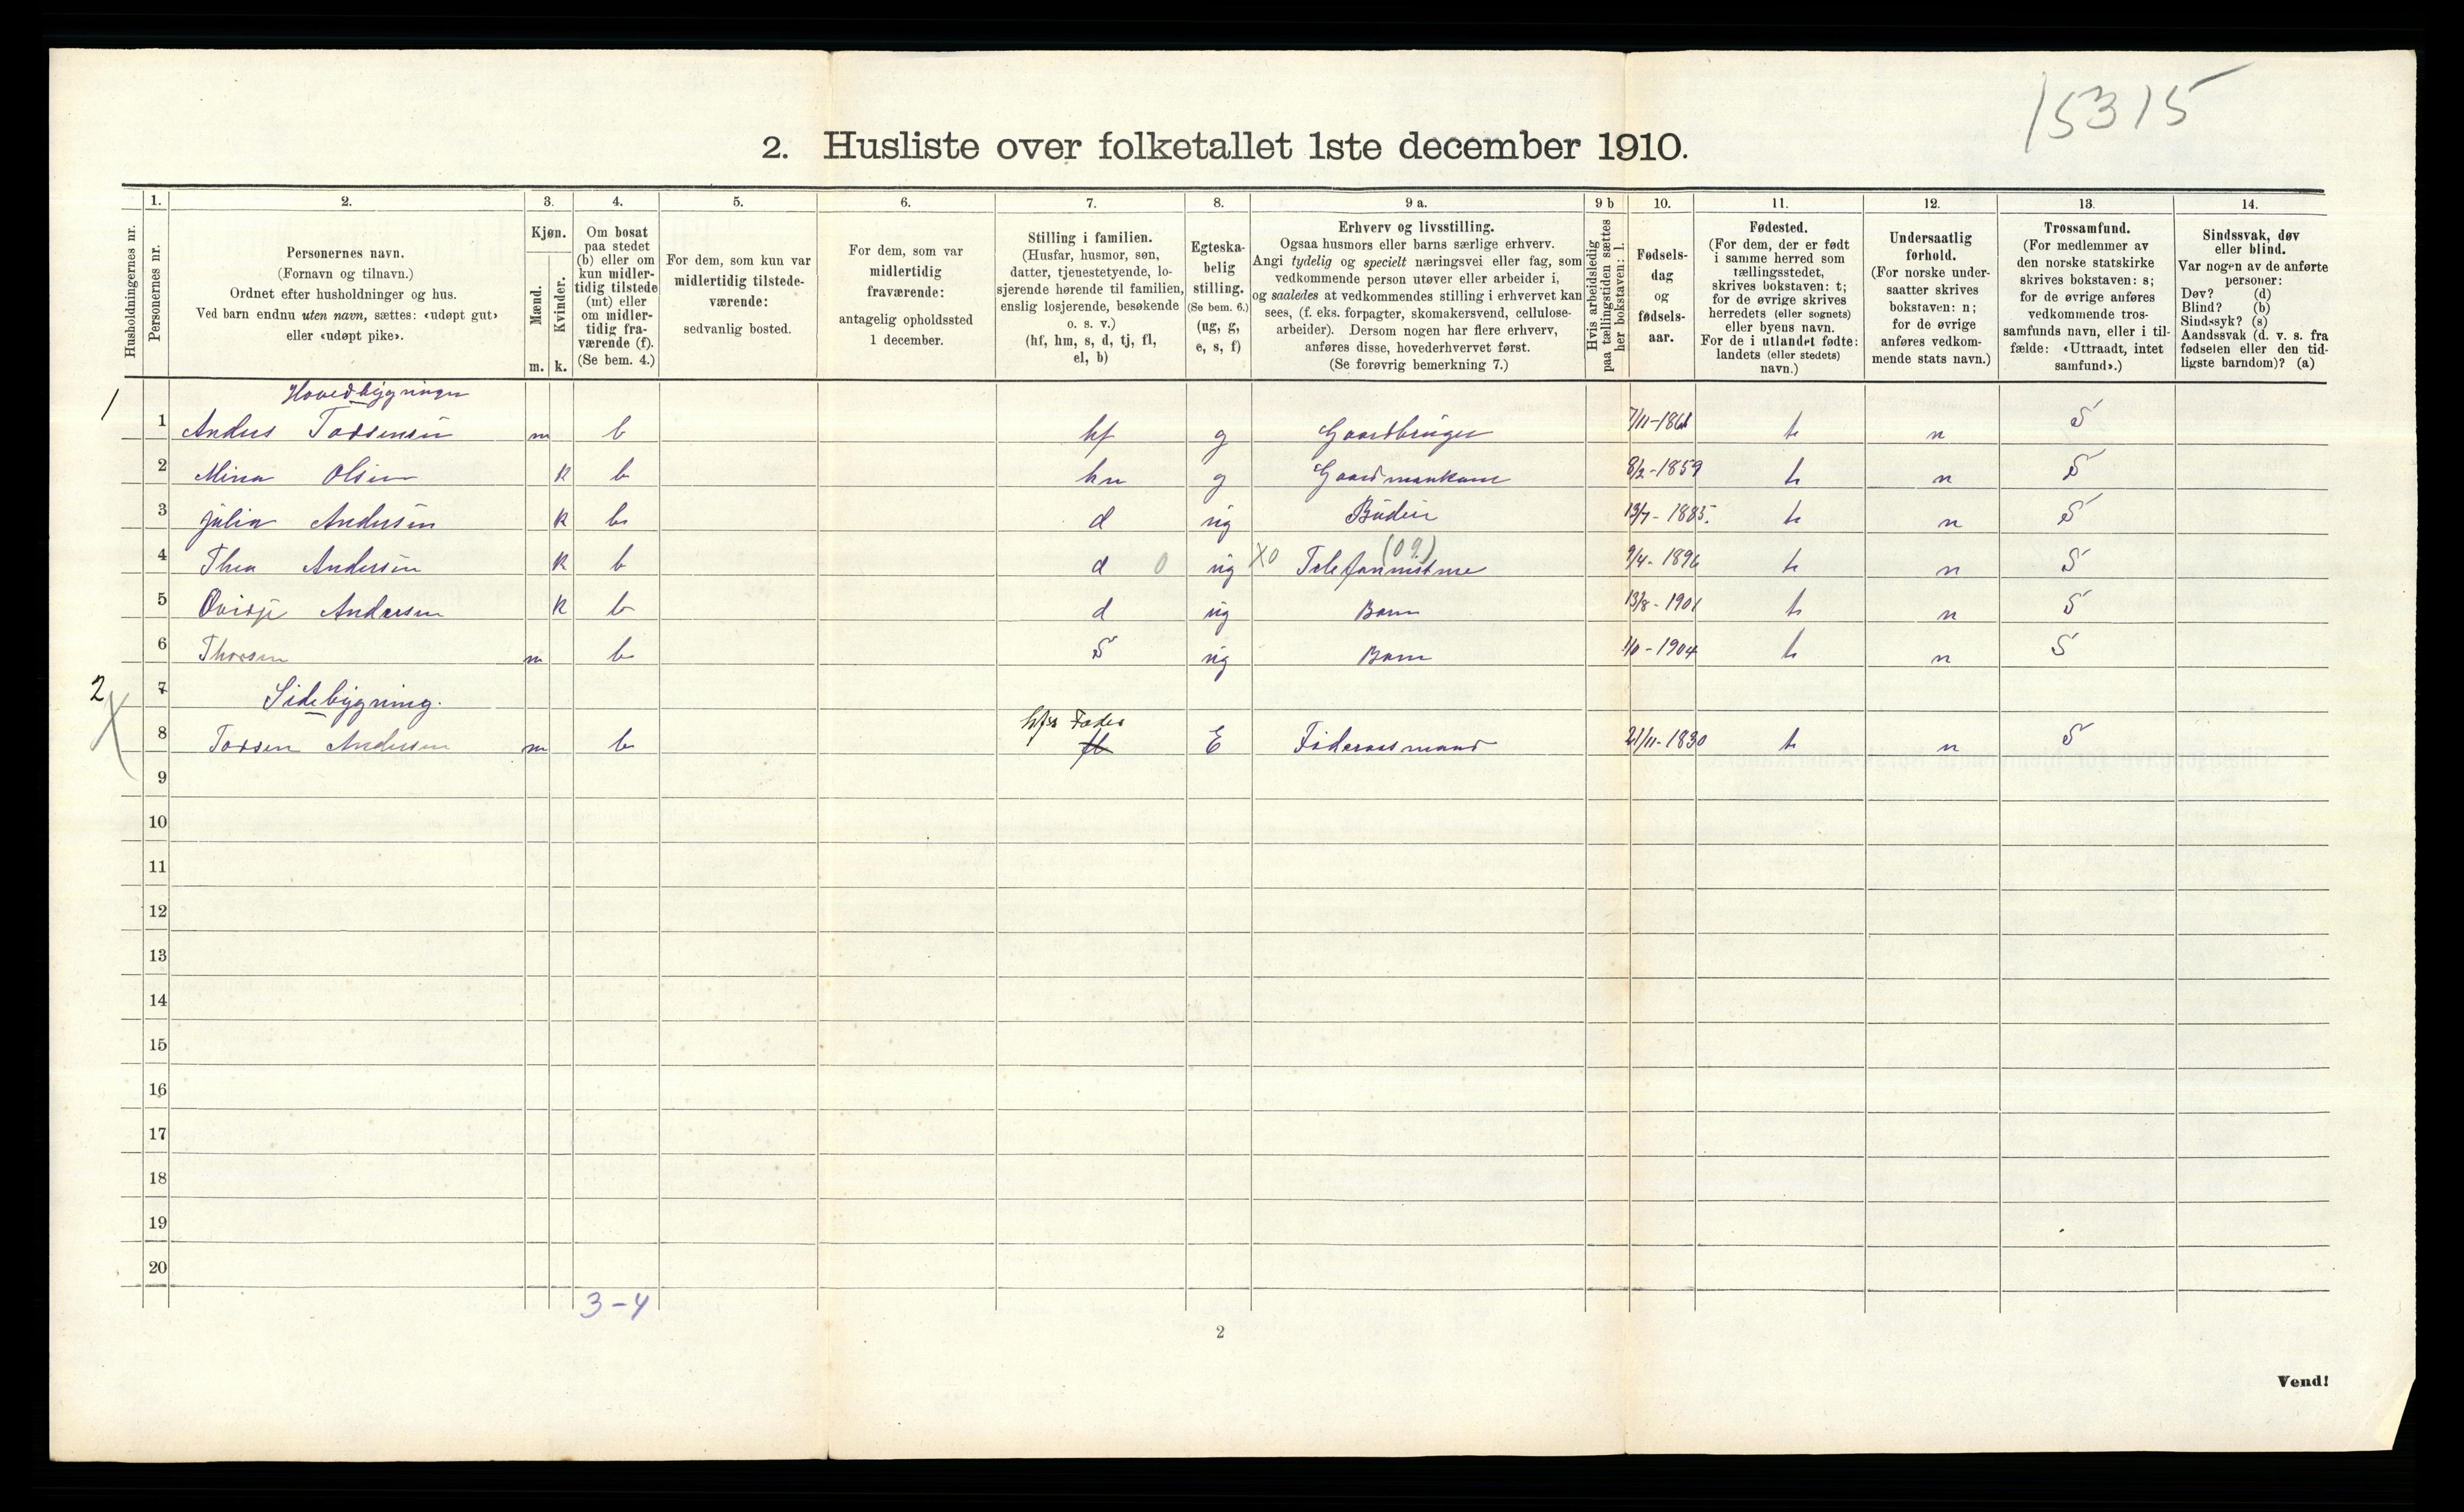 15315
2. Husliste over folketallet 1ste december 1910.
Husholdningernes nr.
1.
Personernes nr.
2.
Personernes navn.
(Fornavn og tilnavn.)
Ordnet efter husholdninger og hus.
Ved barn endnu uten navn, sættes: «udøpt gut»
eller «udøpt pike».
3.
Kjøn.
Mænd.
Kvinder.
m. k.
4.
Om bosat
paa stedet
(b) eller om
kun midler-
tidig tilstede
(mt) eller
om midler-
tidig fra-
værende (f).
(Se bem. 4.)
5.
For dem, som kun var
midlertidig tilstede-
værende:
sedvanlig bosted.
6.
For dem, som var
midlertidig
fraværende:
antagelig opholdssted
1 december.
7.
Stilling i familien.
(Husfar, husmor, søn,
datter, tjenestetyende, lo-
sjerende hørende til familien,
enslig losjerende, besøkende
o. s. v.)
(hf, hm, s, d, tj, fl,
el, b)
8.
Egteska-
belig
stilling.
(Se bem. 6.)
(ug, g,
e, s, f)
9 a.
Erhverv og livsstilling.
Ogsaa husmors eller barns særlige erhverv.
Angi tydelig og specielt næringsvei eller fag, som
vedkommende person utøver eller arbeider i,
og saaledes at vedkommendes stilling i erhvervet kan
sees, (f. eks. forpagter, skomakersvend, cellulose-
arbeider). Dersom nogen har flere erhverv,
anføres disse, hovederhvervet først.
(Se forøvrig bemerkning 7.)
9 b
Hvis arbeidsledig
paa tællingstiden sættes
her bokstaven: l.
10.
Fødsels-
dag
og
fødsels-
aar.
11.
Fødested.
(For dem, der er født
i samme herred som
tællingsstedet,
skrives bokstaven: t;
for de øvrige skrives
herredets (eller sognets)
eller byens navn.
For de i utlandet fødte:
landets (eller stedets)
navn.)
12.
Undersaatlig
forhold.
(For norske under-
saatter skrives
bokstaven: n;
for de øvrige
anføres vedkom-
mende stats navn.)
13.
Trossamfund.
(For medlemmer av
den norske statskirke
skrives bokstaven: s;
for de øvrige anføres
vedkommende tros-
samfunds navn, eller i til-
fælde: «Uttraadt, intet
samfund».)
14.
Sindssvak, døv
eller blind.
Var nogen av de anførte
personer:
Døv? (d)
Blind? (b)
Sindssyk? (s)
Aandssvak (d. v. s. fra
fødselen eller den tid-
ligste barndom)? (a)
Hovedbygningen
1 1 Anders Torsensen m b hf g Gaardbruger 7/11-1861 t n S
2 Mina Olsen k b hm g Gaardmankone 8/2-1859 t n S
3 Julia Andersen k b d ug Budeie 13/7-1885. t n S
4 Thea Andersen k b d 0 ug X0 Telefonnistine (09.) 9/4-1896 t n S
5 Ovidje Andersen k b d ug Barn 13/8-1901 t n S
6 Thorsen m b S ug Barn 1904 t n S
2 7 Sidebygning.
X 8 Torsen Andersen m b hfs Fader fl E Føderaasmand 21/11-1830 t n S
9
10
11
12
13
14
15
16
17
18
19
20
3-4
2
Vend!